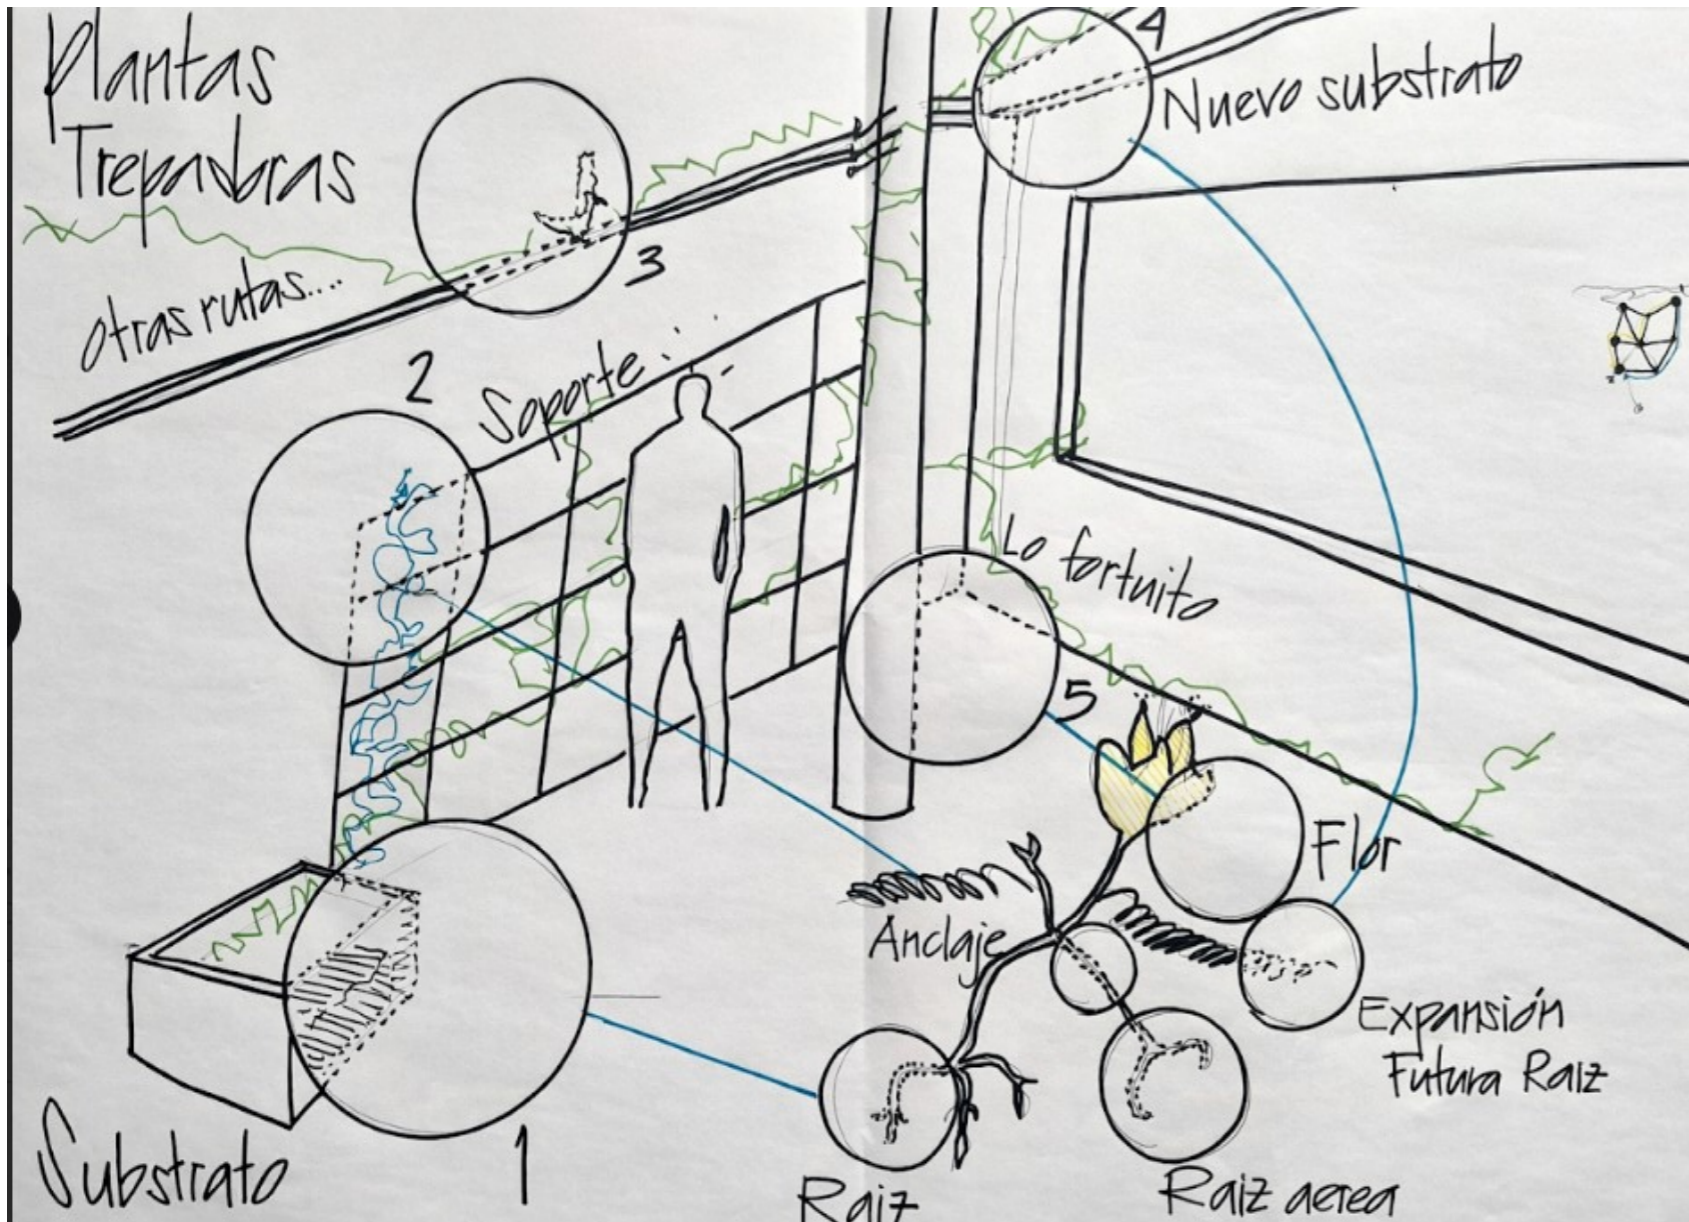 Plantas
Trepadoras
4
Nuevo substrato
3
otras rutas....
2
Soporte...
Lo fortuito
5
Flor
Anclaje
Expansión
Futura Raiz
Substrato
1
Raiz
Raiz aerea